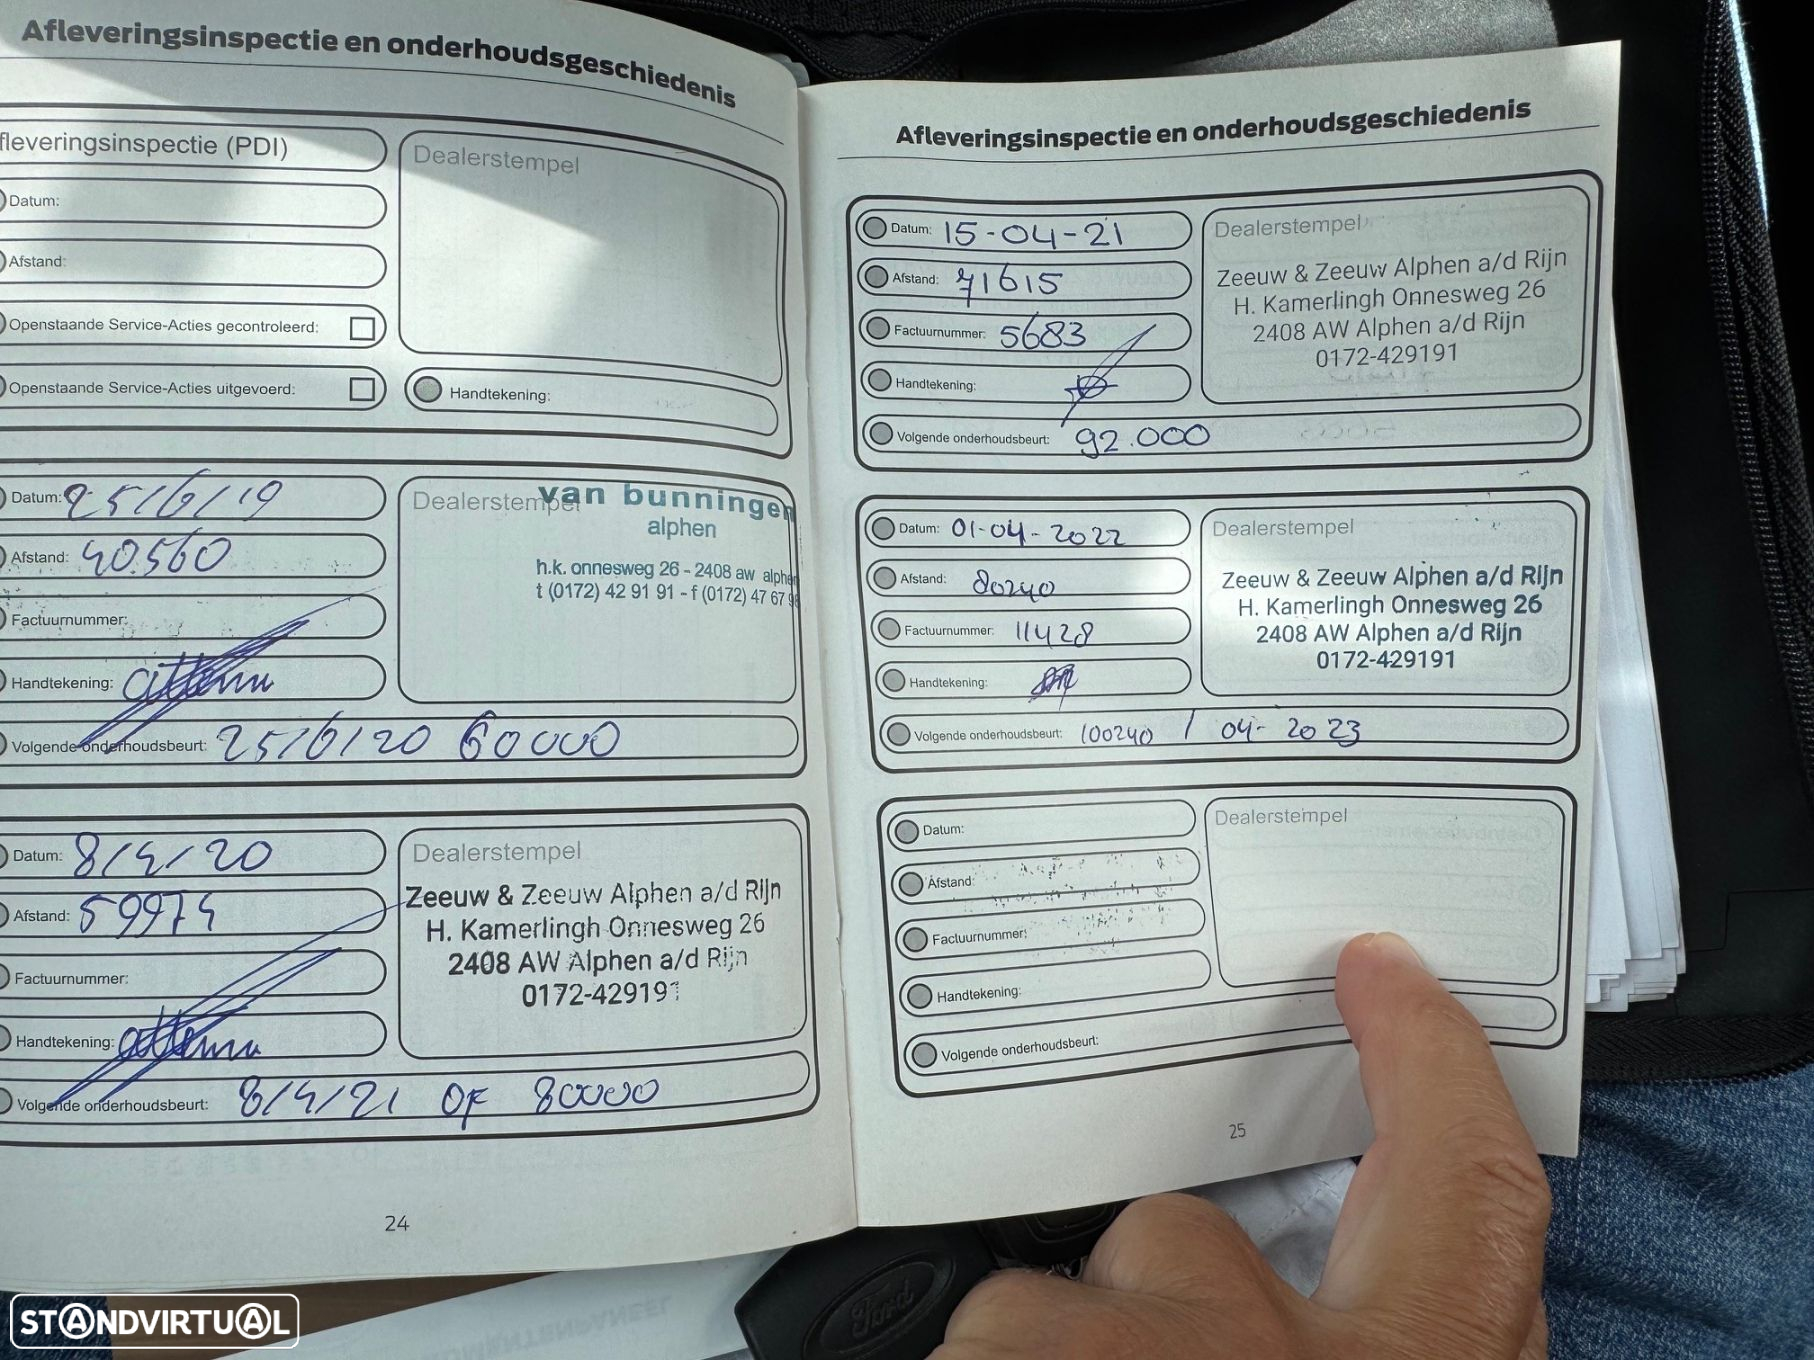 Afleveringsinspectie en onderhoudsgeschiedenis
fleveringsinspectie (PDI)
Dealerstempel
Datum:
Afstand:
Openstaande Service-Acties gecontroleerd:
Openstaande Service-Acties uitgevoerd:
Handtekening:
Datum: 25/6/19
Dealerstempel
van bunningen
alphen
h.k. onnesweg 26 - 2408 aw alphen
t (0172) 42 91 91 - f (0172) 47 67 9
Afstand: 40.560
Factuurnummer:
Handtekening:
Volgende onderhoudsbeurt: 25/6/20 60000
Datum: 8/4/20
Dealerstempel
Zeeuw & Zeeuw Alphen a/d Rijn
H. Kamerlingh Onnesweg 26
2408 AW Alphen a/d Rijn
0172-429191
Afstand: 59974
Factuurnummer:
Handtekening:
Volgende onderhoudsbeurt: 8/4/21 OF 80000
24
Afleveringsinspectie en onderhoudsgeschiedenis
Datum: 15-04-21
Dealerstempel
Zeeuw & Zeeuw Alphen a/d Rijn
H. Kamerlingh Onnesweg 26
2408 AW Alphen a/d Rijn
0172-429191
Afstand: 71615
Factuurnummer: 5683
Handtekening:
Volgende onderhoudsbeurt: 92.000
Datum: 01-04-2022
Dealerstempel
Zeeuw & Zeeuw Alphen a/d Rijn
H. Kamerlingh Onnesweg 26
2408 AW Alphen a/d Rijn
0172-429191
Afstand: 80240
Factuurnummer: 11428
Handtekening:
Volgende onderhoudsbeurt: 100240 / 04-2023
Datum:
Dealerstempel
Afstand:
Factuurnummer:
Handtekening:
Volgende onderhoudsbeurt:
25
Ford
STANDVIRTUAL